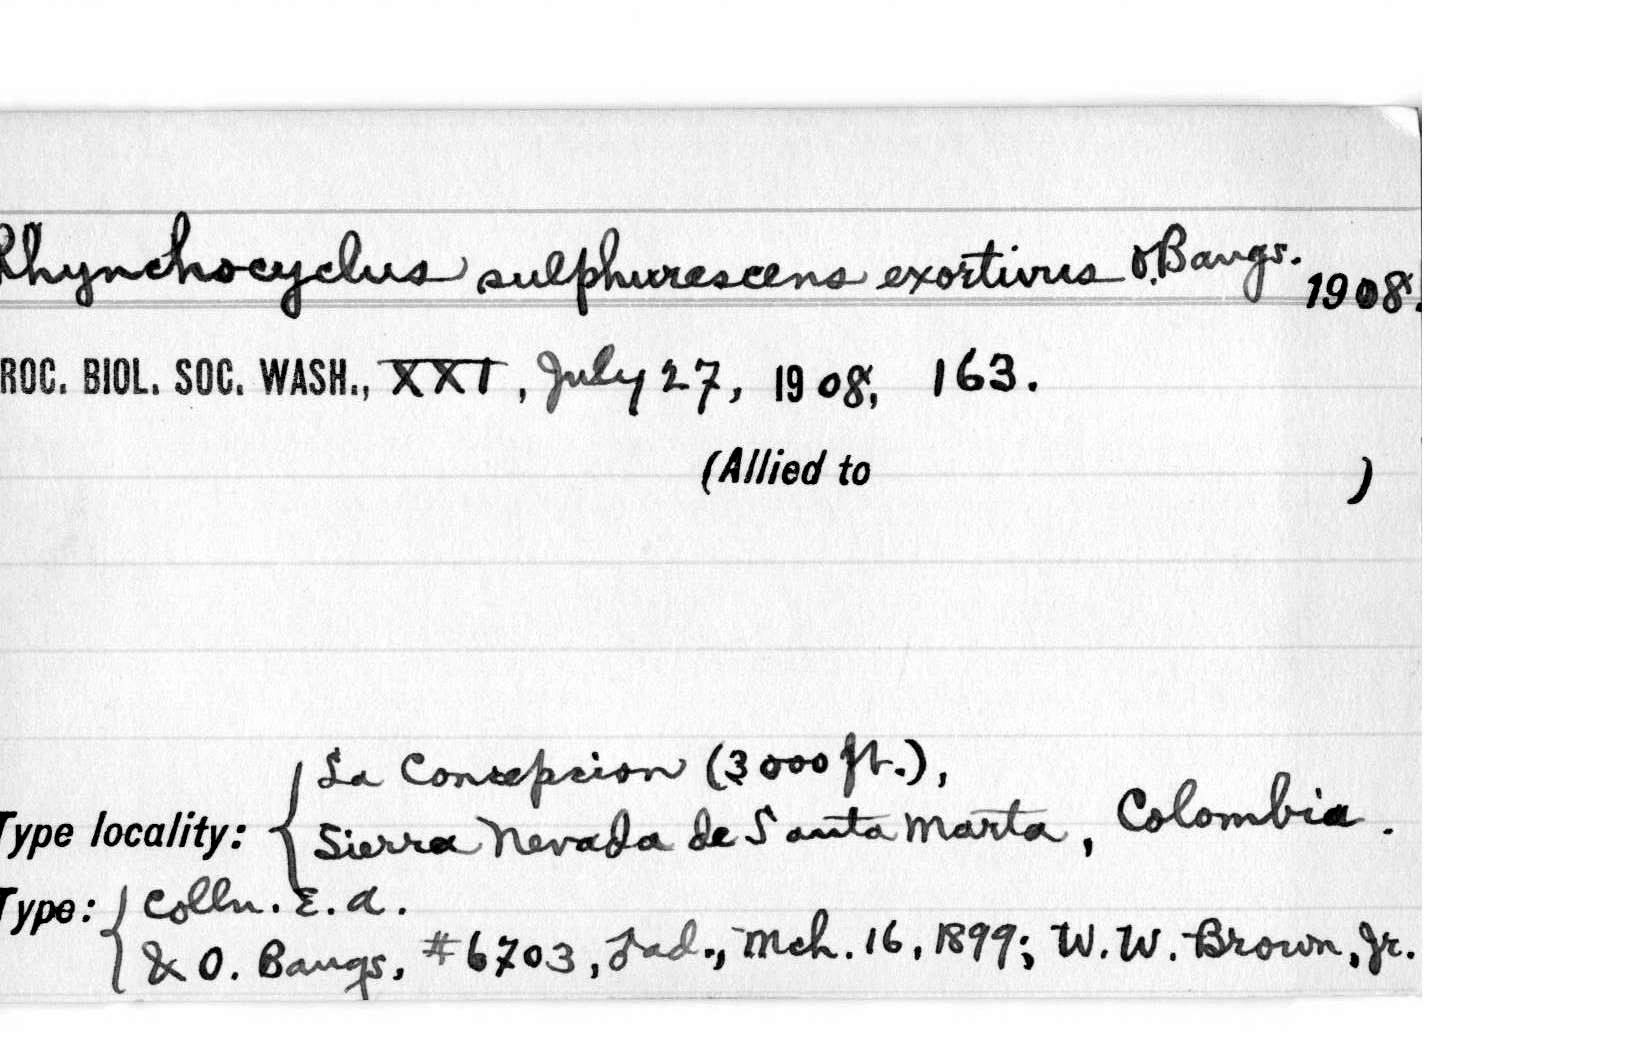 Rhynchocyclus sulphurescens exortivus O. Bangs. 1908.
ROC. BIOL. SOC. WASH., XXI, July 27, 1908, 163.
(Allied to )
Type locality: { La Concepcion (3000 ft.),
Sierra Nevada de Santa Marta, Colombia.
Type: { Colln. E. A.
& O. Bangs, #6703, ♂ad., Mch. 16, 1899; W. W. Brown, Jr.